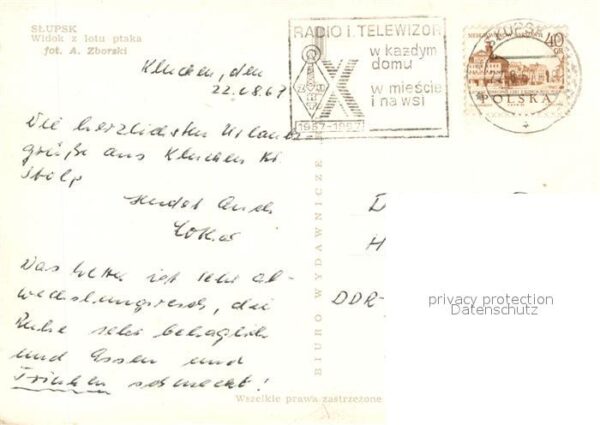 SŁUPSK
Widok z lotu ptaka
fot. A. Zborski
RADIO I TELEWIZOR
w każdym
domu
w mieście
i na wsi
X
40
GR
POLSKA
Klucken, den
22.08.67
Die herzlichsten Urlaubs-
grüße aus Klucken Kr
Stolp
sendet Euch
Das Wetter ist sehr ab-
wechslungsreich, die
Ruhe sehr behaglich
und Essen und
Trinken schmeckt!
BIURO WYDAWNICZE
D
H
DDR-
privacy protection
Datenschutz
Wszelkie prawa zastrzeżone